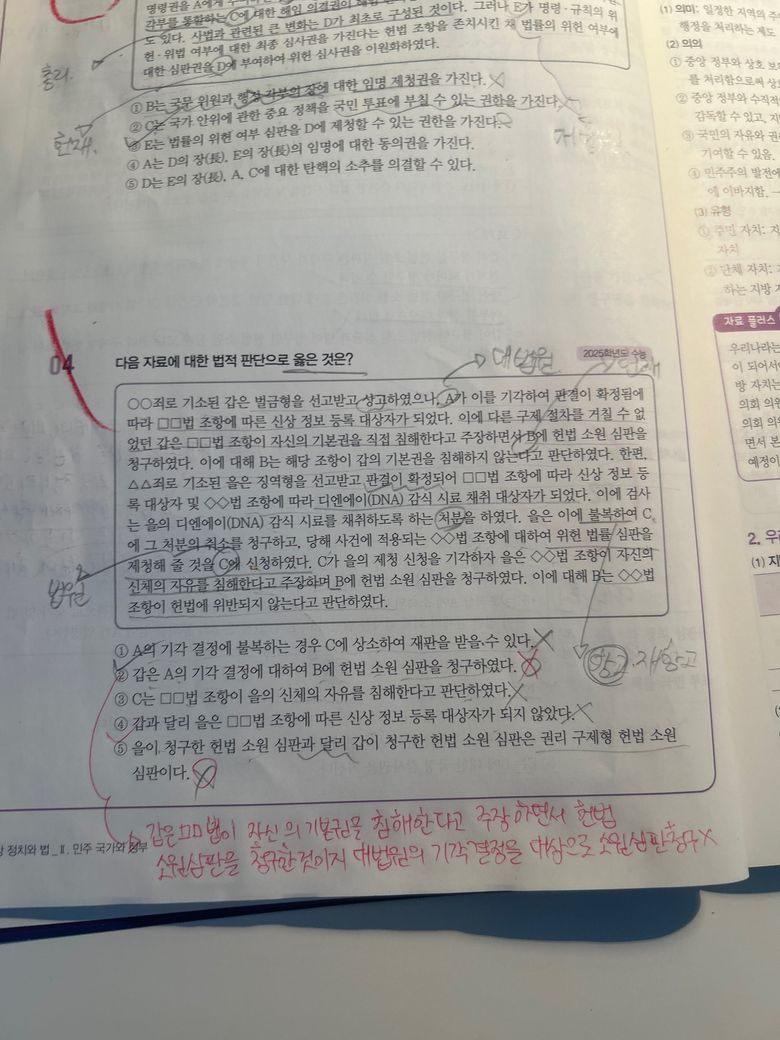 명령권을 A에게
각부를 통할하는 C에 대한 해임 의결권의 그러나 E가 명령·규칙의 위
도 있다. 사법과 관련된 큰 변화는 D가 최초로 구성된 것이다.
헌·위법 여부에 대한 최종 심사권을 가진다는 헌법 조항을 존치시킨 채 법률의 위헌 여부에
대한 심판권을 D에 부여하여 위헌 심사권을 이원화하였다.
총리
① B는 국무 위원과 행정 각부의 장에 대한 임명 제청권을 가진다.
② C는 국가 안위에 관한 중요 정책을 국민 투표에 부칠 수 있는 권한을 가진다.
③ E는 법률의 위헌 여부 심판을 D에 제청할 수 있는 권한을 가진다.
④ A는 D의 장(長), E의 장(長)의 임명에 대한 동의권을 가진다.
⑤ D는 E의 장(長), A, C에 대한 탄핵의 소추를 의결할 수 있다.
헌재.
04 다음 자료에 대한 법적 판단으로 옳은 것은?
2025학년도 수능
대법원
○○죄로 기소된 갑은 벌금형을 선고받고 상고하였으나, A가 이를 기각하여 판결이 확정됨에
따라 □□법 조항에 따른 신상 정보 등록 대상자가 되었다. 이에 다른 구제 절차를 거칠 수 없
었던 갑은 □□법 조항이 자신의 기본권을 직접 침해한다고 주장하면서 B에 헌법 소원 심판을
청구하였다. 이에 대해 B는 해당 조항이 갑의 기본권을 침해하지 않는다고 판단하였다. 한편,
△△죄로 기소된 을은 징역형을 선고받고 판결이 확정되어 □□법 조항에 따라 신상 정보 등
록 대상자 및 ◇◇법 조항에 따라 디엔에이(DNA) 감식 시료 채취 대상자가 되었다. 이에 검사
는 을의 디엔에이(DNA) 감식 시료를 채취하도록 하는 처분을 하였다. 을은 이에 불복하여 C
에 그 처분의 취소를 청구하고, 당해 사건에 적용되는 ◇◇법 조항에 대하여 위헌 법률 심판을
제청해 줄 것을 C에 신청하였다. C가 을의 제청 신청을 기각하자 을은 ◇◇법 조항이 자신의
신체의 자유를 침해한다고 주장하며 B에 헌법 소원 심판을 청구하였다. 이에 대해 B는 ◇◇법
조항이 헌법에 위반되지 않는다고 판단하였다.
법원
① A의 기각 결정에 불복하는 경우 C에 상소하여 재판을 받을 수 있다.
② 갑은 A의 기각 결정에 대하여 B에 헌법 소원 심판을 청구하였다.
항고·재항고
③ C는 □□법 조항이 을의 신체의 자유를 침해한다고 판단하였다.
④ 갑과 달리 을은 □□법 조항에 따른 신상 정보 등록 대상자가 되지 않았다.
⑤ 을이 청구한 헌법 소원 심판과 달리 갑이 청구한 헌법 소원 심판은 권리 구제형 헌법 소원
심판이다.
갑은 □□법이 자신의 기본권을 침해한다고 주장하면서 헌법
소원심판을 청구한것이지 대법원의 기각결정을 대상으로 소원심판청구 X
정치와 법_Ⅱ. 민주 국가와 정부
(1) 의미: 일정한 지역의 주
행정을 처리하는 제도
(2) 의의
① 중앙 정부와 상호 보
를 처리함으로써
② 중앙 정부와 수직적
감독할 수 있고,
③ 국민의 자유와 권
기여할 수 있음.
④ 민주주의 발전에
에 이바지함.
(3) 유형
① 주민 자치:
자치
② 단체 자치:
하는 지방
자료 플러스
우리나라는
이 되어
방 자치는
의회 의원
의회 의
면서 본
예정이
2. 우리
(1)